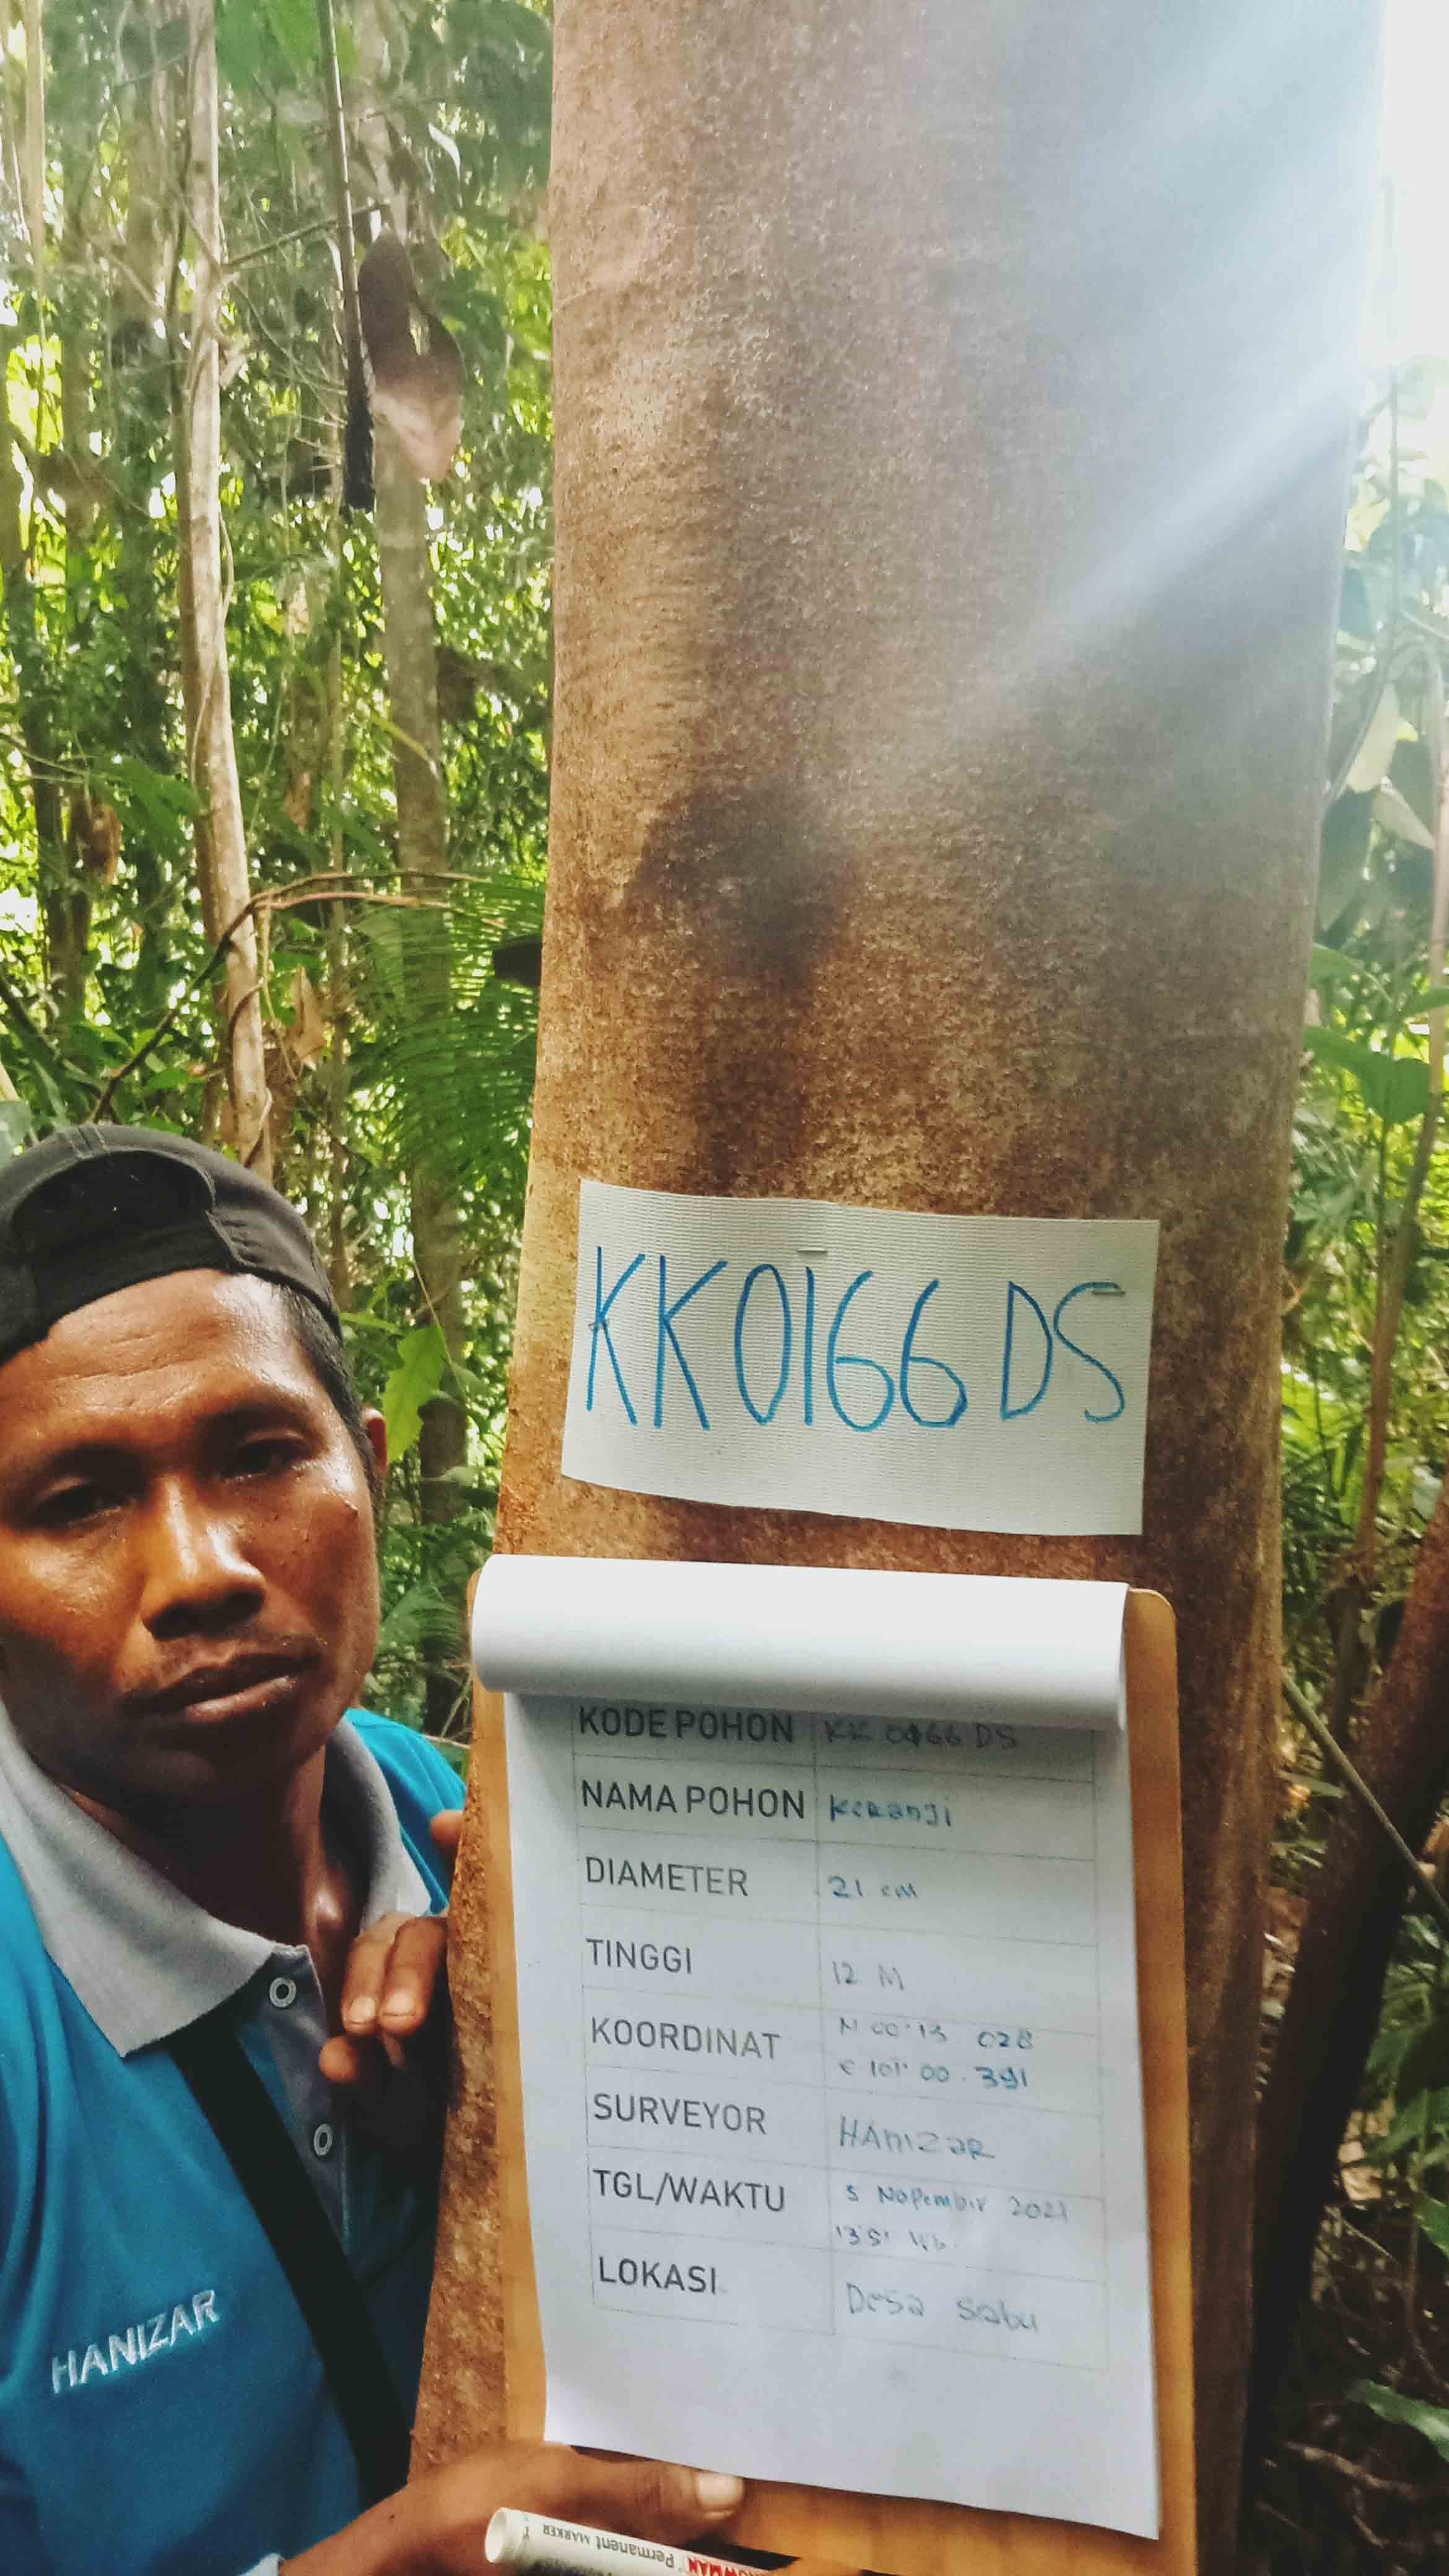 KK0166 DS
KODE POHON KK 0166 DS
NAMA POHON KeRanJi
DIAMETER 21 cM
TINGGI 12 M
KOORDINAT N 00° 13 . 028
E 101° 00 . 391
SURVEYOR HAnIZaR
TGL/WAKTU 5 Nopember 2021
13 51 Wib.
LOKASI Desa sabu
HANIZAR
Permanent MARKER